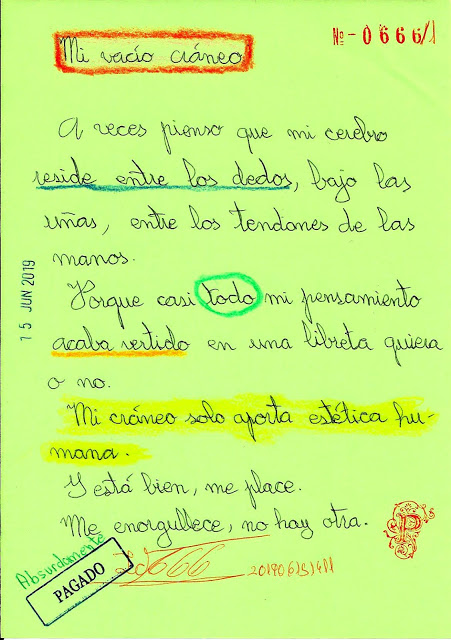 Nº - 0666/1
Mi vacío cráneo
A veces pienso que mi cerebro
reside entre los dedos, bajo las
uñas, entre los tendones de las
manos.
Porque casi todo mi pensamiento
acaba vertido en una libreta quiera
o no.
Mi cráneo solo aporta estética hu-
mana.
Y está bien, me place.
Me enorgullece, no hay otra.
15 JUN 2019
Absurdamente
PAGADO
P